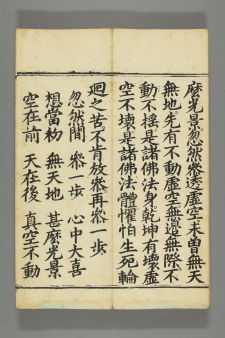 麽光景忽然叅透虛空未曽無天
無地先有不動虛空無邉無際不
動不揺是諸佛法身乾坤有壞虛
空不壞是諸佛法體懼怕生死輪
廻之苦不肯放叅再叅一歩
忽然間　叅一歩　心中大喜
想當初　無天地　甚麽光景
空在前　天在後　真空不動